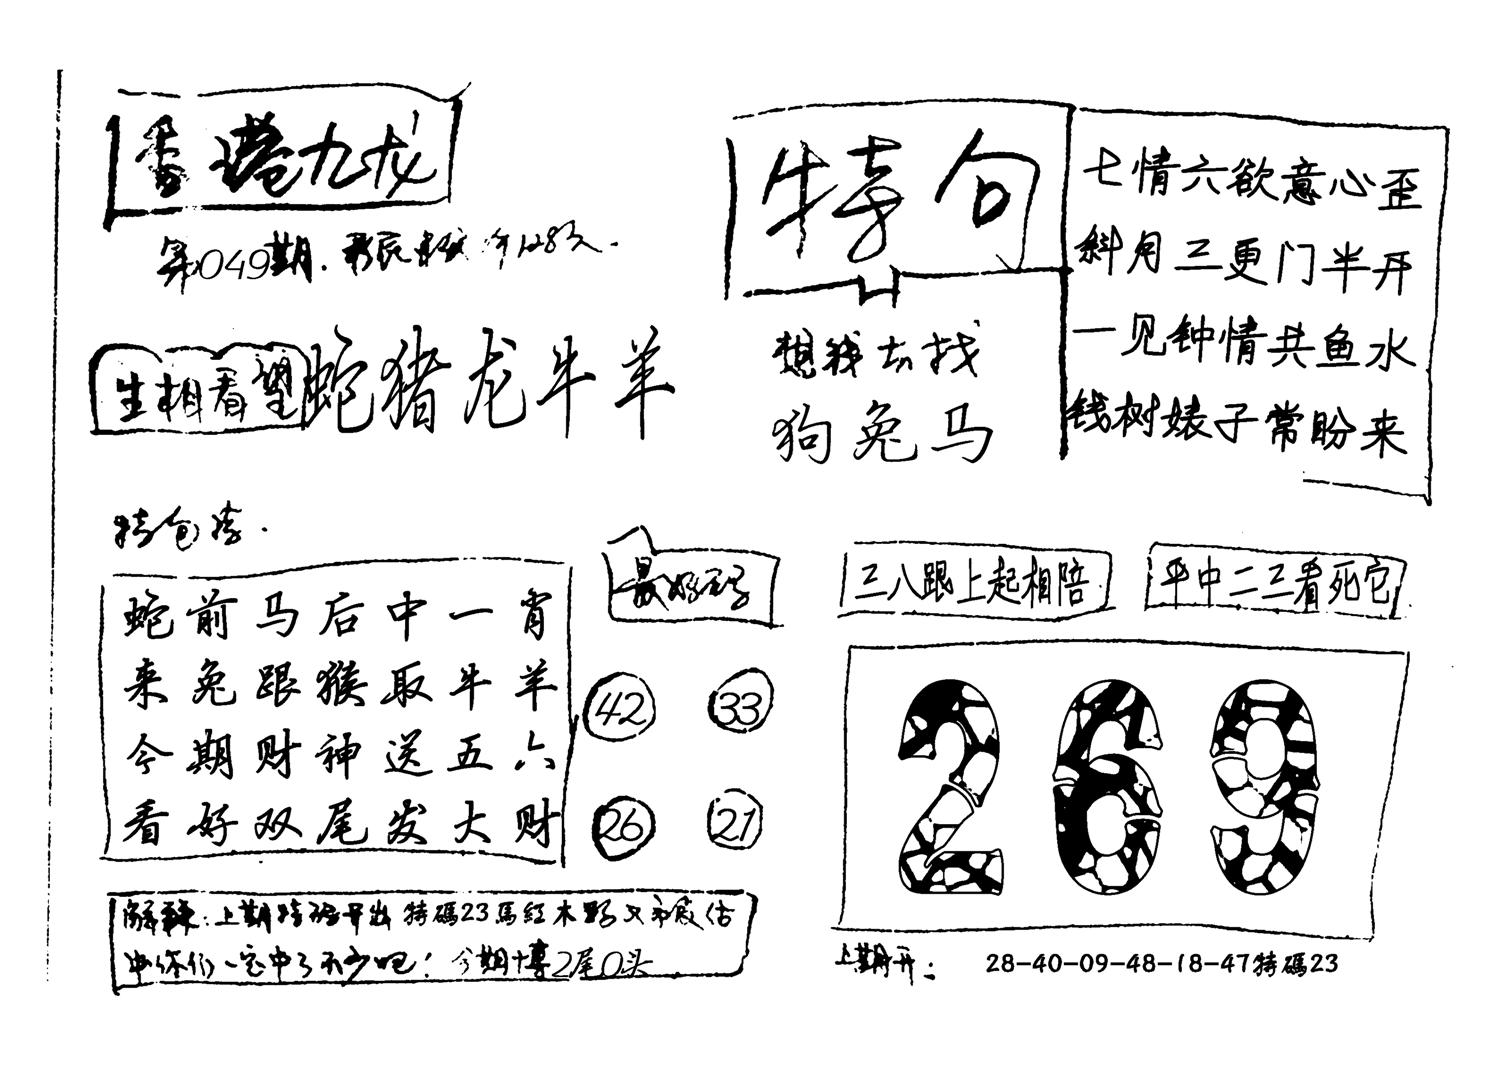 香港九龙
第049期.
生相看望 蛇猪龙牛羊
特句
想钱去找
狗兔马
七情六欲意心歪
斜月三更门半开
一见钟情共鱼水
钱树婊子常盼来
特包赢.
蛇前马后中一肖
来兔跟猴取牛羊
今期财神送五六
看好双尾发大财
最好码
42 33
26 21
三八跟上起相陪
平中二三看死它
269
解释:上期特码开出特碼23馬紅木野
你们一定中了不少吧!今期十博2尾0头
上期开: 28-40-09-48-18-47特碼23